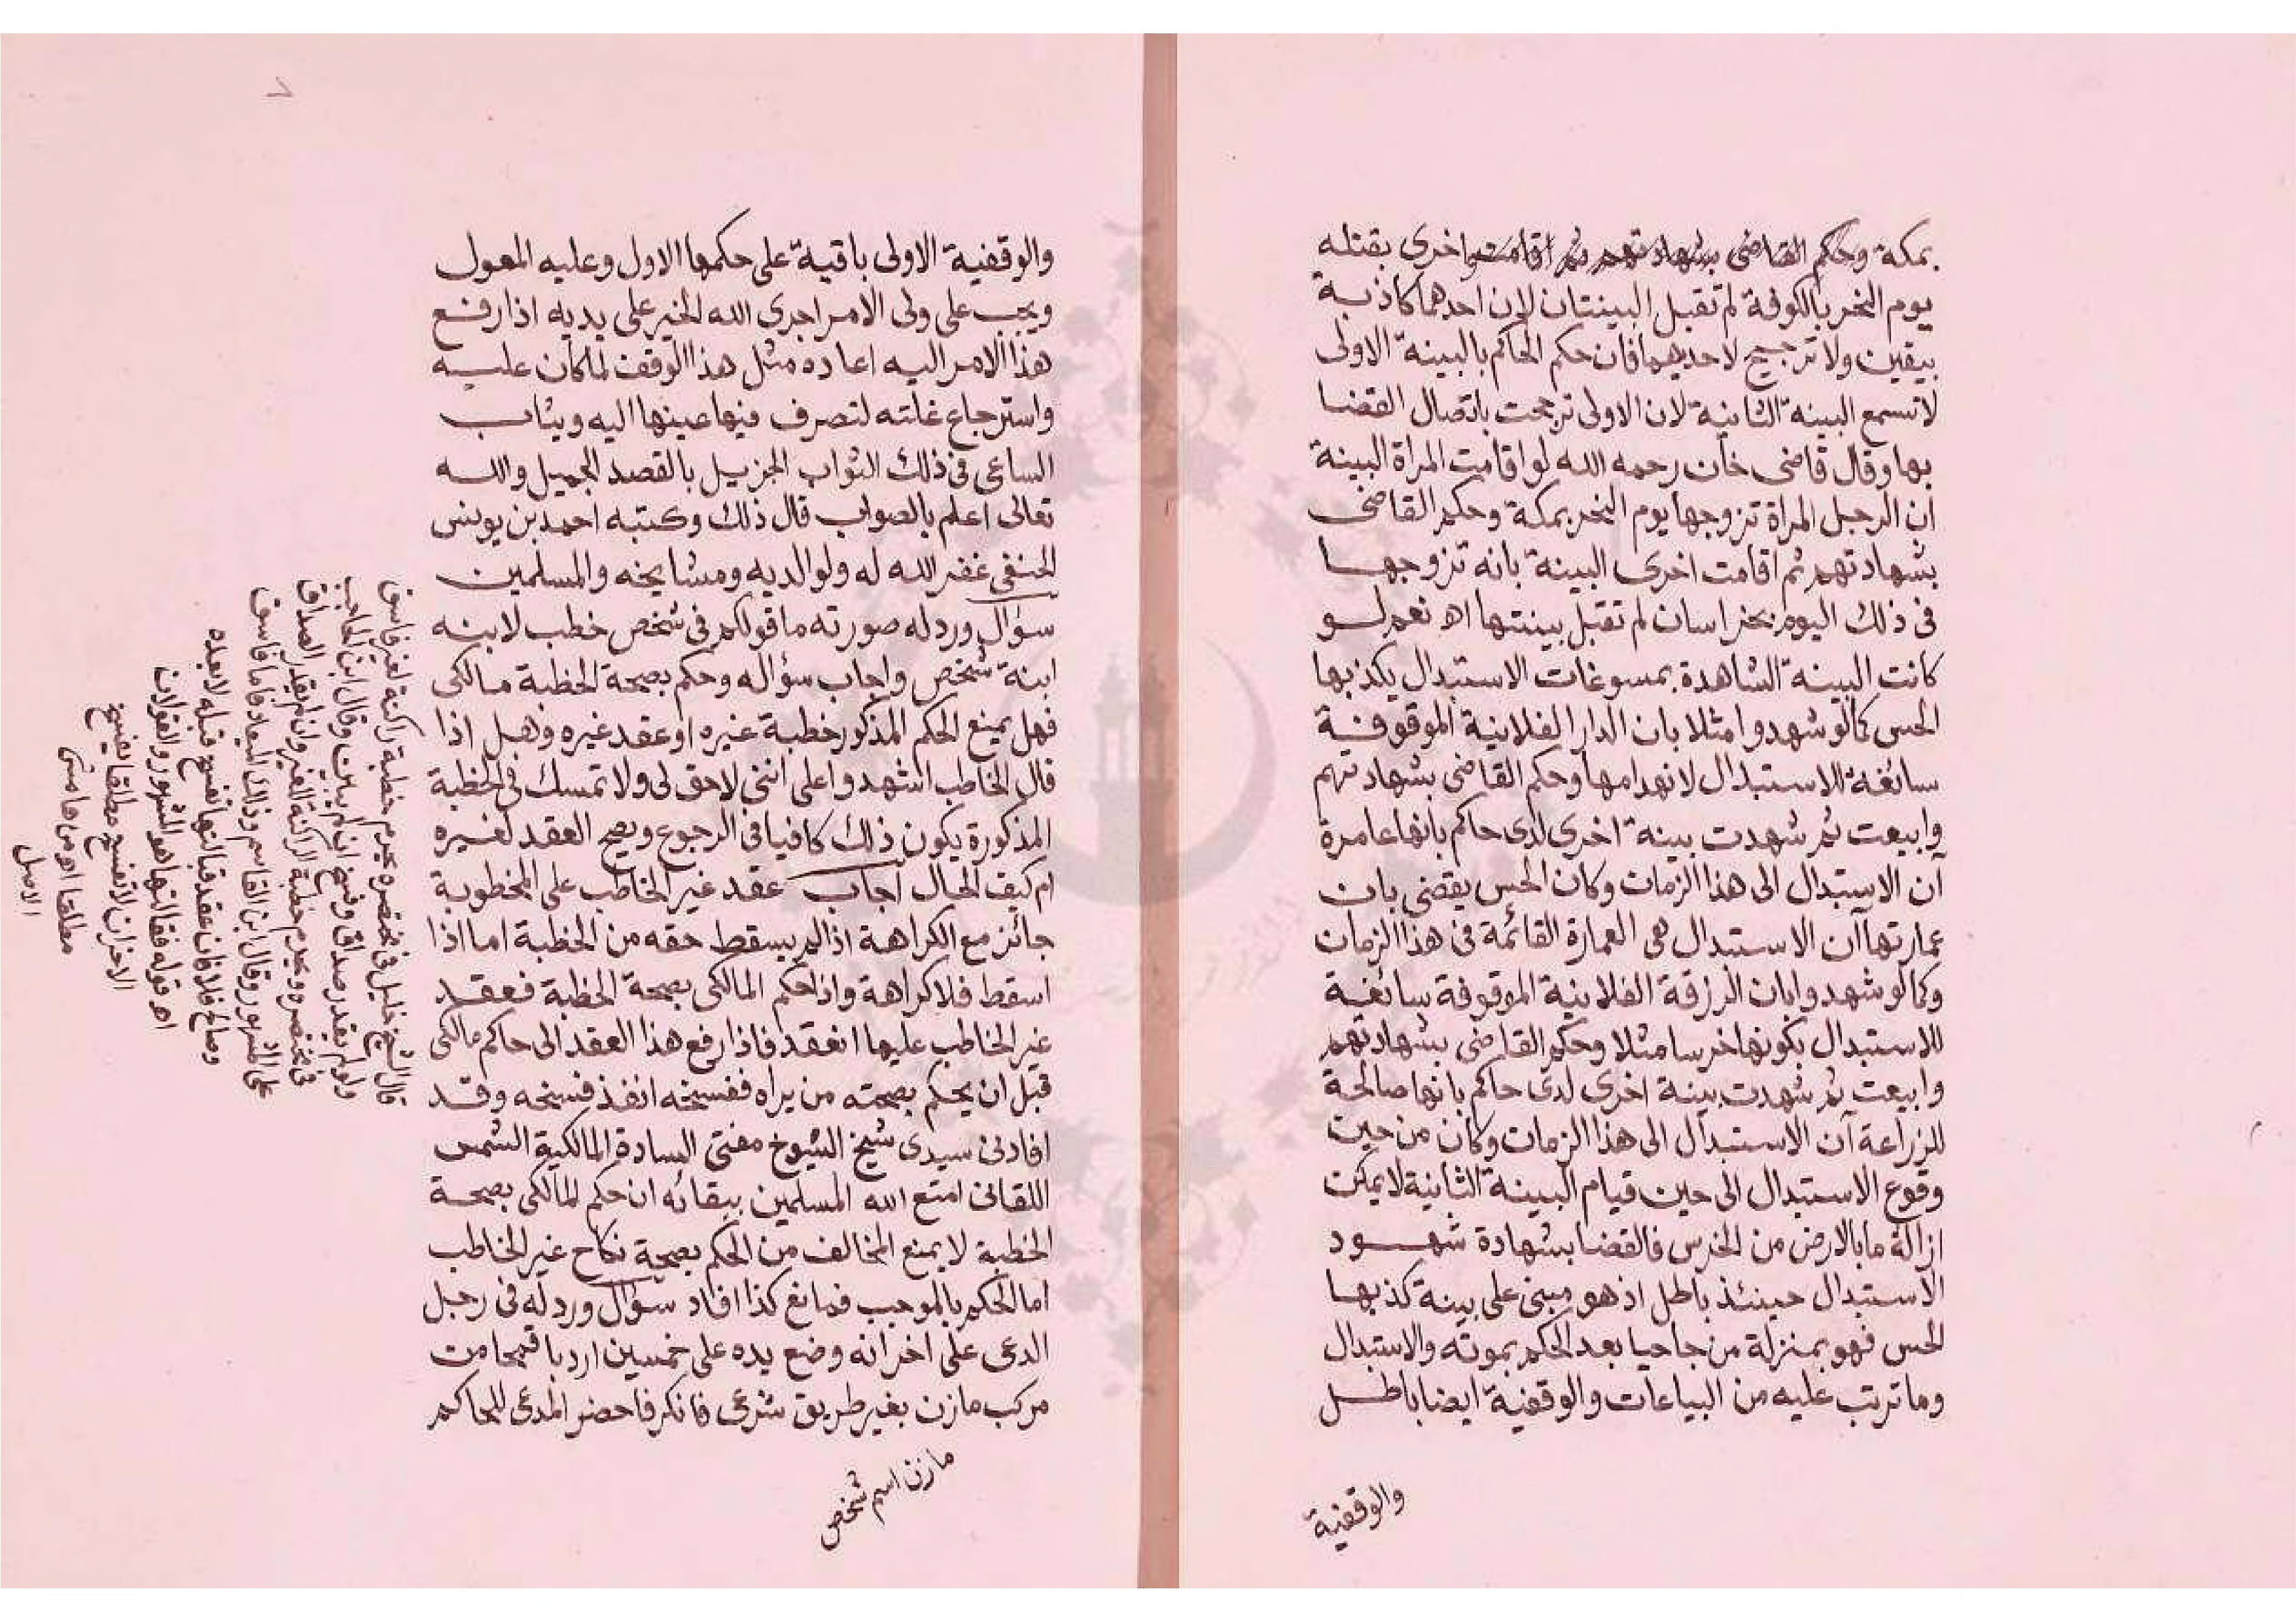 بمكة وحكم القاضى بشهادتهم ثم اقامت اخرى بقتله
يوم النحر بالكوفة لم تقبل البينتان لان احدهما كاذبة
بيقين ولا ترجيح لاحديهما فان حكم الحاكم بالبينة الاولى
لا تسمع البينة الثانية لان الاولى ترجحت باتصال القضا
بها وقال قاضى خان رحمه الله لو اقامت المراة البينة
ان الرجل المراة تزوجها يوم النحر بمكة وحكم القاضى
بشهادتهم ثم اقامت اخرى البينة بانه تزوجها
فى ذلك اليوم بخراسان لم تقبل بينتها اه نعم لو
كانت البينة الشاهدة بمسوغات الاستبدال يكذبها
الحس كما لو شهدوا مثلا بان الدار الفلانية الموقوفة
سائغة للاستبدال لانهدامها وحكم القاضى بشهادتهم
وابيعت ثم شهدت بينة اخرى لدى حاكم بانها عامرة
آن الاستبدال الى هذا الزمان وكان الحس يقضى بان
عمارتها آن الاستبدال هى العمارة القائمة فى هذا الزمان
وكما لو شهدوا بان الرزقة الفلانية الموقوفة سائغة
للاستبدال بكونها خرسا مثلا وحكم القاضى بشهادتهم
وابيعت ثم شهدت بينة اخرى لدى حاكم بانها صالحة
للزراعة آن الاستبدال الى هذا الزمان وكان من حين
وقوع الاستبدال الى حين قيام البينة الثانية لا يمكن
ازالة ما بالارض من الخرس فالقضا بشهادة شهود
الاستبدال حينئذ باطل اذ هو مبنى على بينة كذبها
الحس فهو بمنزلة من جا حيا بعد الحكم بموته والاستبدال
وما ترتب عليه من البياعات والوقفية ايضا باطل
والوقفية
والوقفية الاولى باقية على حكمها الاول وعليه المعول
ويجب على ولى الامر اجرى الله الخير على يديه اذا رفع
هذا الامر اليه اعاده مثل هذا الوقف لما كان عليه
واسترجاع غلته لتصرف فيما عينها اليه ويثاب
الساعى فى ذلك الثواب الجزيل بالقصد الجميل والله
تعالى اعلم بالصواب قال ذلك وكتبه احمد بن يونس
الحنفى غفر الله له ولوالديه ومشايخه والمسلمين
سؤال ورد له صورته ما قولكم فى شخص خطب لابنه
ابنة شخص واجاب سؤاله وحكم بصحة الخطبة مالكى
فهل يمنع الحكم المذكور خطبة غيره او عقد غيره وهل اذا
قال الخاطب اشهدوا على اننى لا حق لى ولا تمسك فى الخطبة
المذكورة يكون ذلك كافيا فى الرجوع ويصح العقد لغيره
ام كيف الحال اجاب عقد غير الخاطب على المخطوبة
جائز مع الكراهة اذا لم يسقط حقه من الخطبة اما اذا
اسقط فلا كراهة واذا حكم المالكى بصحة الخطبة فعقد
غير الخاطب عليها انعقد فاذا رفع هذا العقد الى حاكم مالكى
قبل ان يحكم بصحته من يراه ففسخه انفذ فسخه وقد
افادنى سيدى شيخ الشيوخ مفتى السادة المالكية الشمس
اللقانى امتع الله المسلمين ببقائه ان حكم المالكى بصحة
الخطبة لا يمنع المخالف من الحكم بصحة نكاح غير الخاطب
اما الحكم بالموجب فمانع كذا افاد سؤال ورد له فى رجل
ادعى على اخر انه وضع يده على خمسين اردبا قمحا من
مركب مازن بغير طريق شرعى فانكر فاحضر المدعى للحاكم
مازن اسم شخص
قال الشيخ خليل فى مختصره يحرم خطبة راكنة لغير فاسق
ولو لم يقدر صداق وفسخ ان لم يبن وقال ابن الحاجب
فى مختصره ويحرم خطبة الراكنة للغير وان لم يقدر الصداق
على المشهور وقال ابن القاسم وذلك فاما فاسق
وصالح فلا فان عقد فثالثها تفسخ قبله لا بعده
اه قوله فثالثها هو المشهور والقولان
الاخران لا تفسخ مطلقا يفسخ
مطلقا اه من هامش
الاصل